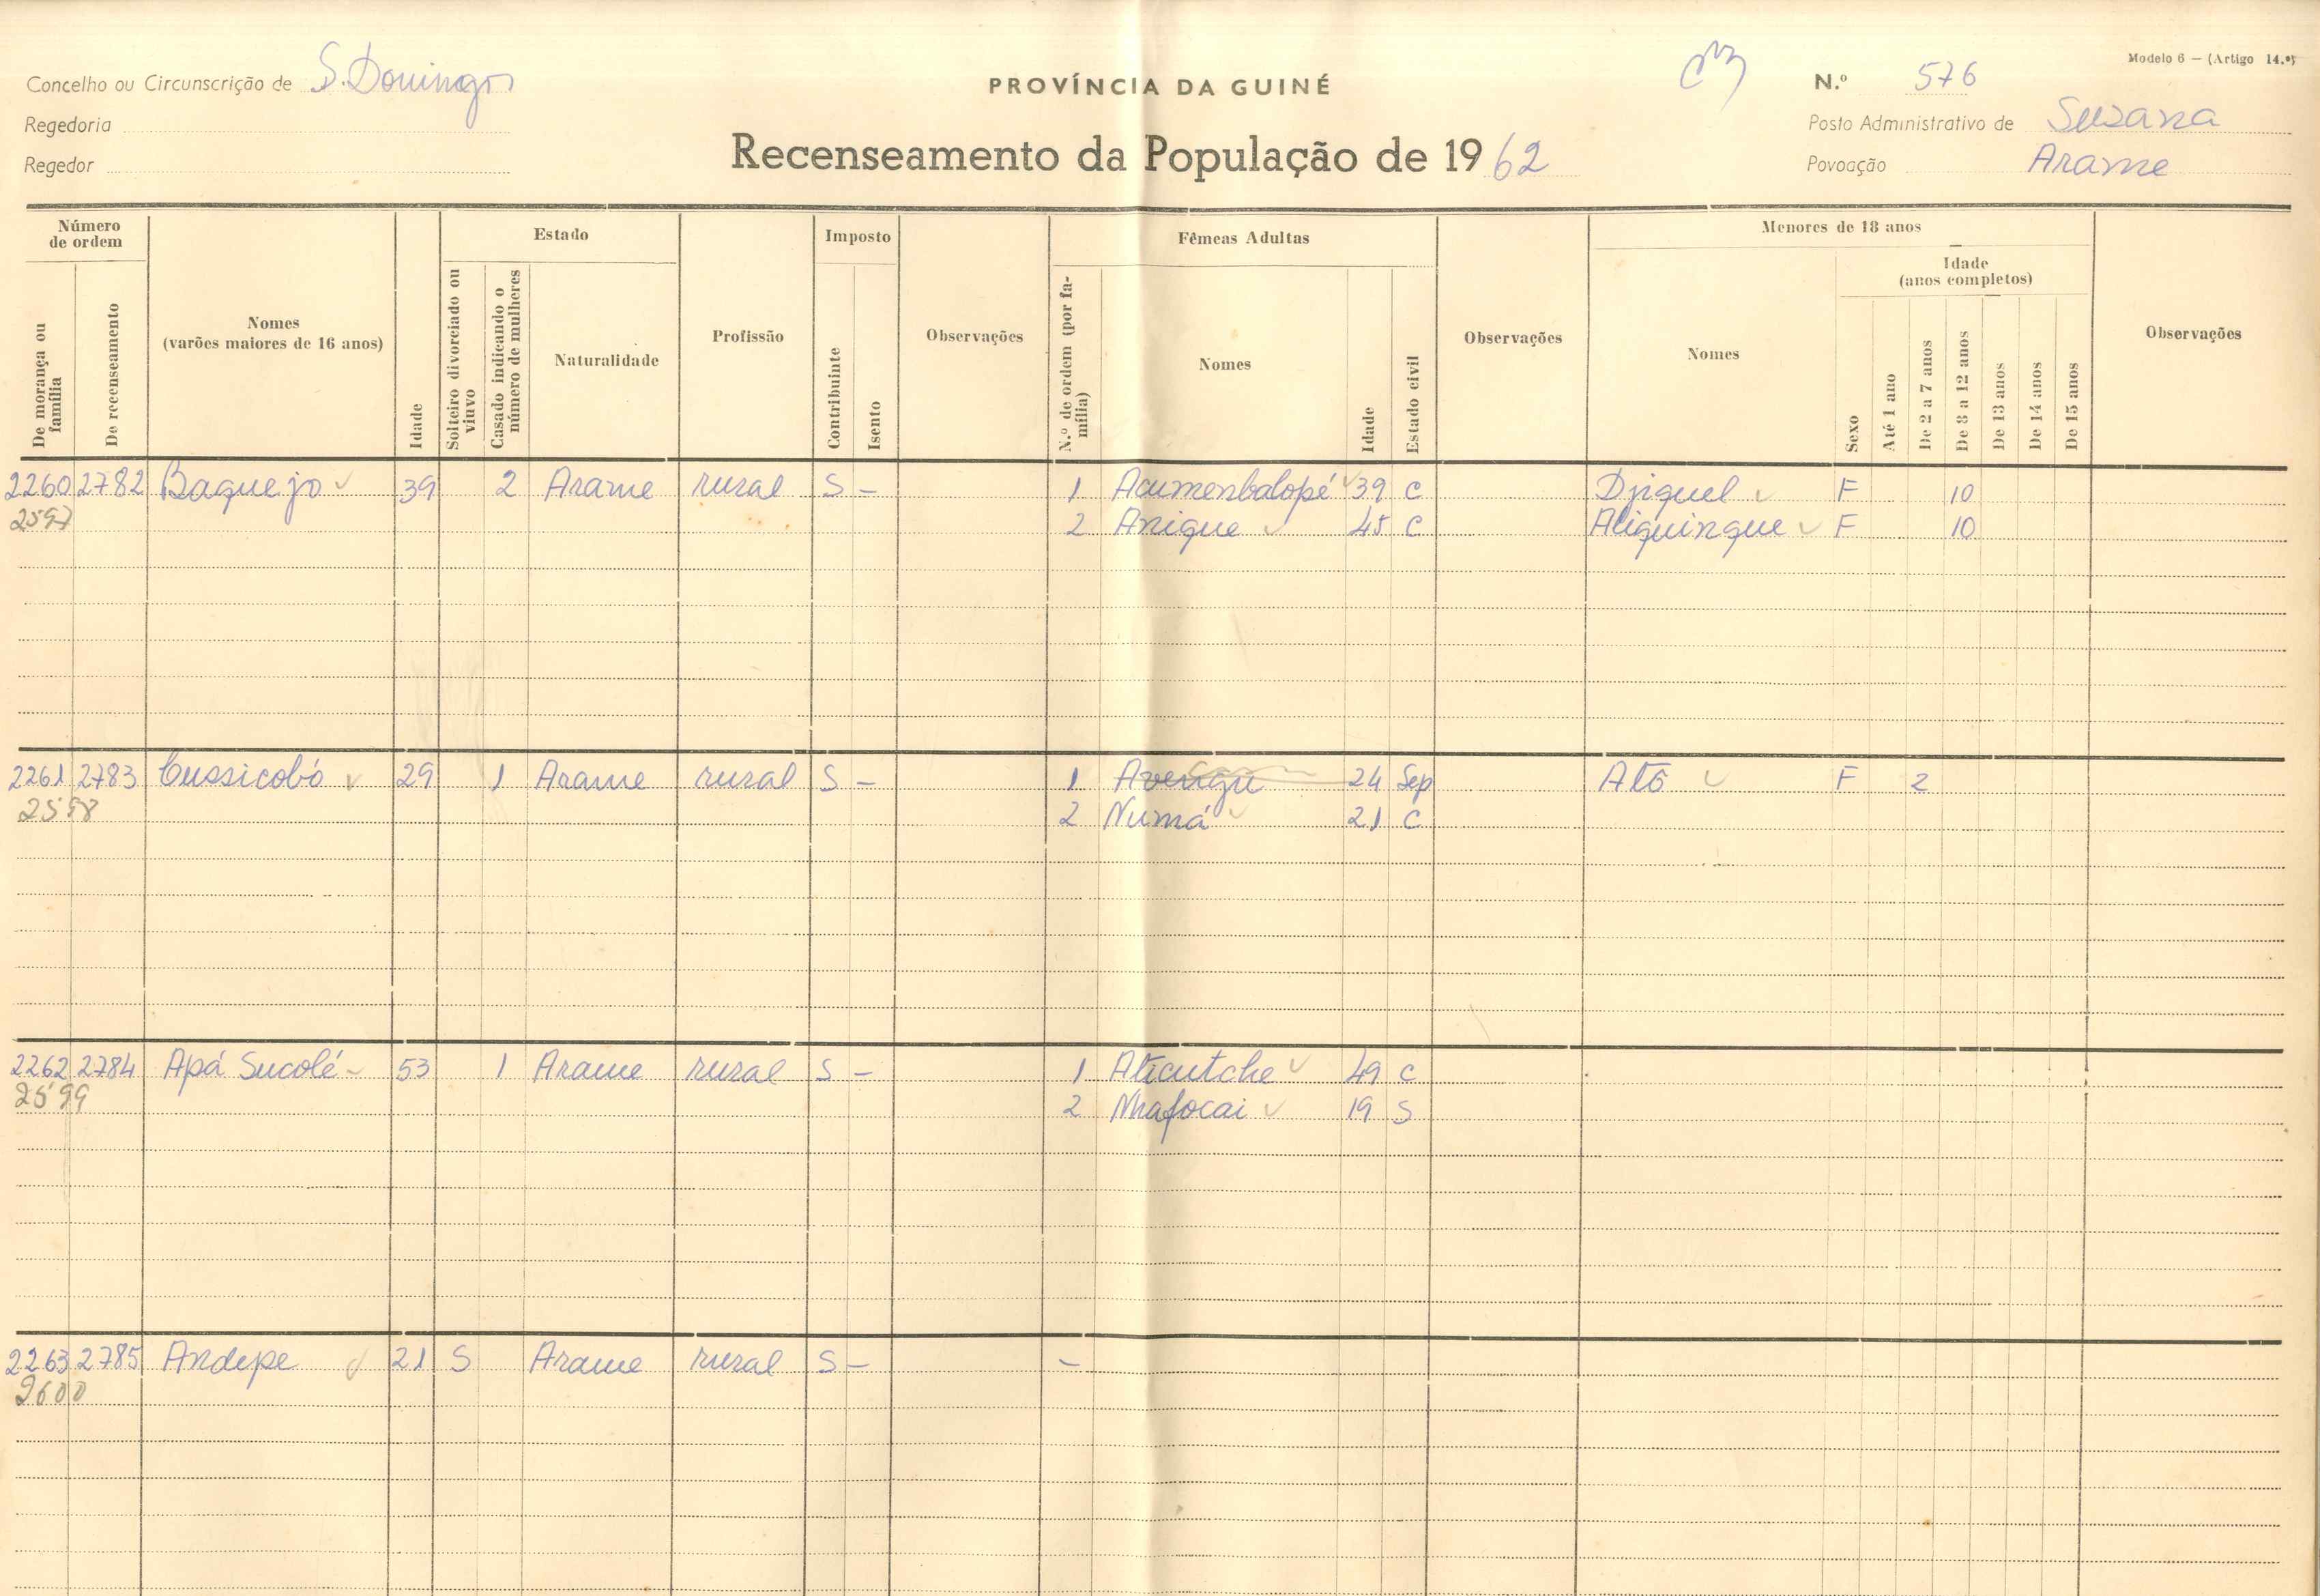 Modelo 6 — (Artigo 14.º)
Concelho ou Circunscrição de S. Domingos
PROVÍNCIA DA GUINÉ
N.º 576
Regedoria
Posto Administrativo de Suzana
Regedor
Recenseamento da População de 1962
Povoação Arame
Número de ordem
De morança ou família
De recenseamento
Nomes
(varões maiores de 16 anos)
Idade
Estado
Solteiro divorciado ou viuvo
Casado indicando o número de mulheres
Naturalidade
Profissão
Imposto
Contribuinte
Isento
Observações
Fêmeas Adultas
N.º de ordem (por família)
Nomes
Idade
Estado civil
Observações
Menores de 18 anos
Nomes
Sexo
Idade
(anos completos)
Até 1 ano
De 2 a 7 anos
De 8 a 12 anos
De 13 anos
De 14 anos
De 15 anos
Observações
2260 2782 Baquejo 39 2 Arame rural S – 1 Acumenbalopé 39 C Djiguel F 10
2597 2 Anique 45 C Aliguinque F 10
2261 2783 Cussicobó 29 1 Arame rural S – 1 24 Sep Ató F 2
2598 2 Numá 21 C
2262 2784 Apá Sucolé 53 1 Arame rural S – 1 Aticutche 49 C
2599 2 Nhafocai 19 S
2263 2785 Andepe 21 S Arame rural S – –
2600